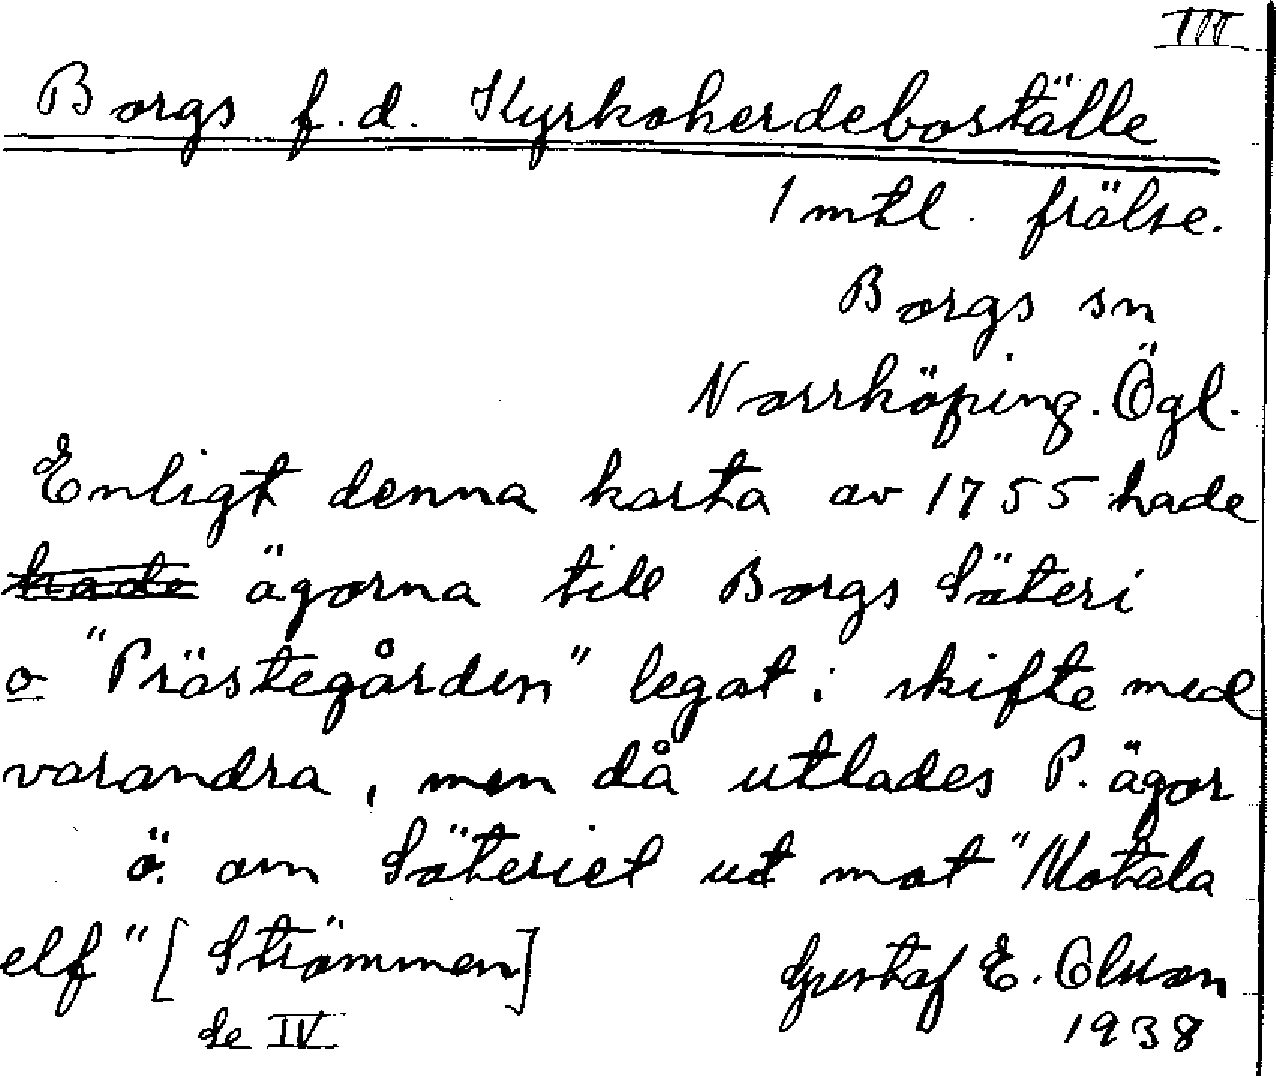 III
Borgs f. d. Kyrkoherdeboställe
1 mtl. frälse.
Borgs sn
Norrköping. Ögl.
Enligt denna karta av 1755 hade
hade ägorna till Borgs Säteri
o "Prästegården" legat i skifte med
varandra, men då utlades P. ägor
ö. om Säteriet ut mot "Motala
elf" [Strömmen]
Gustaf E. Olsson
se IV
1938